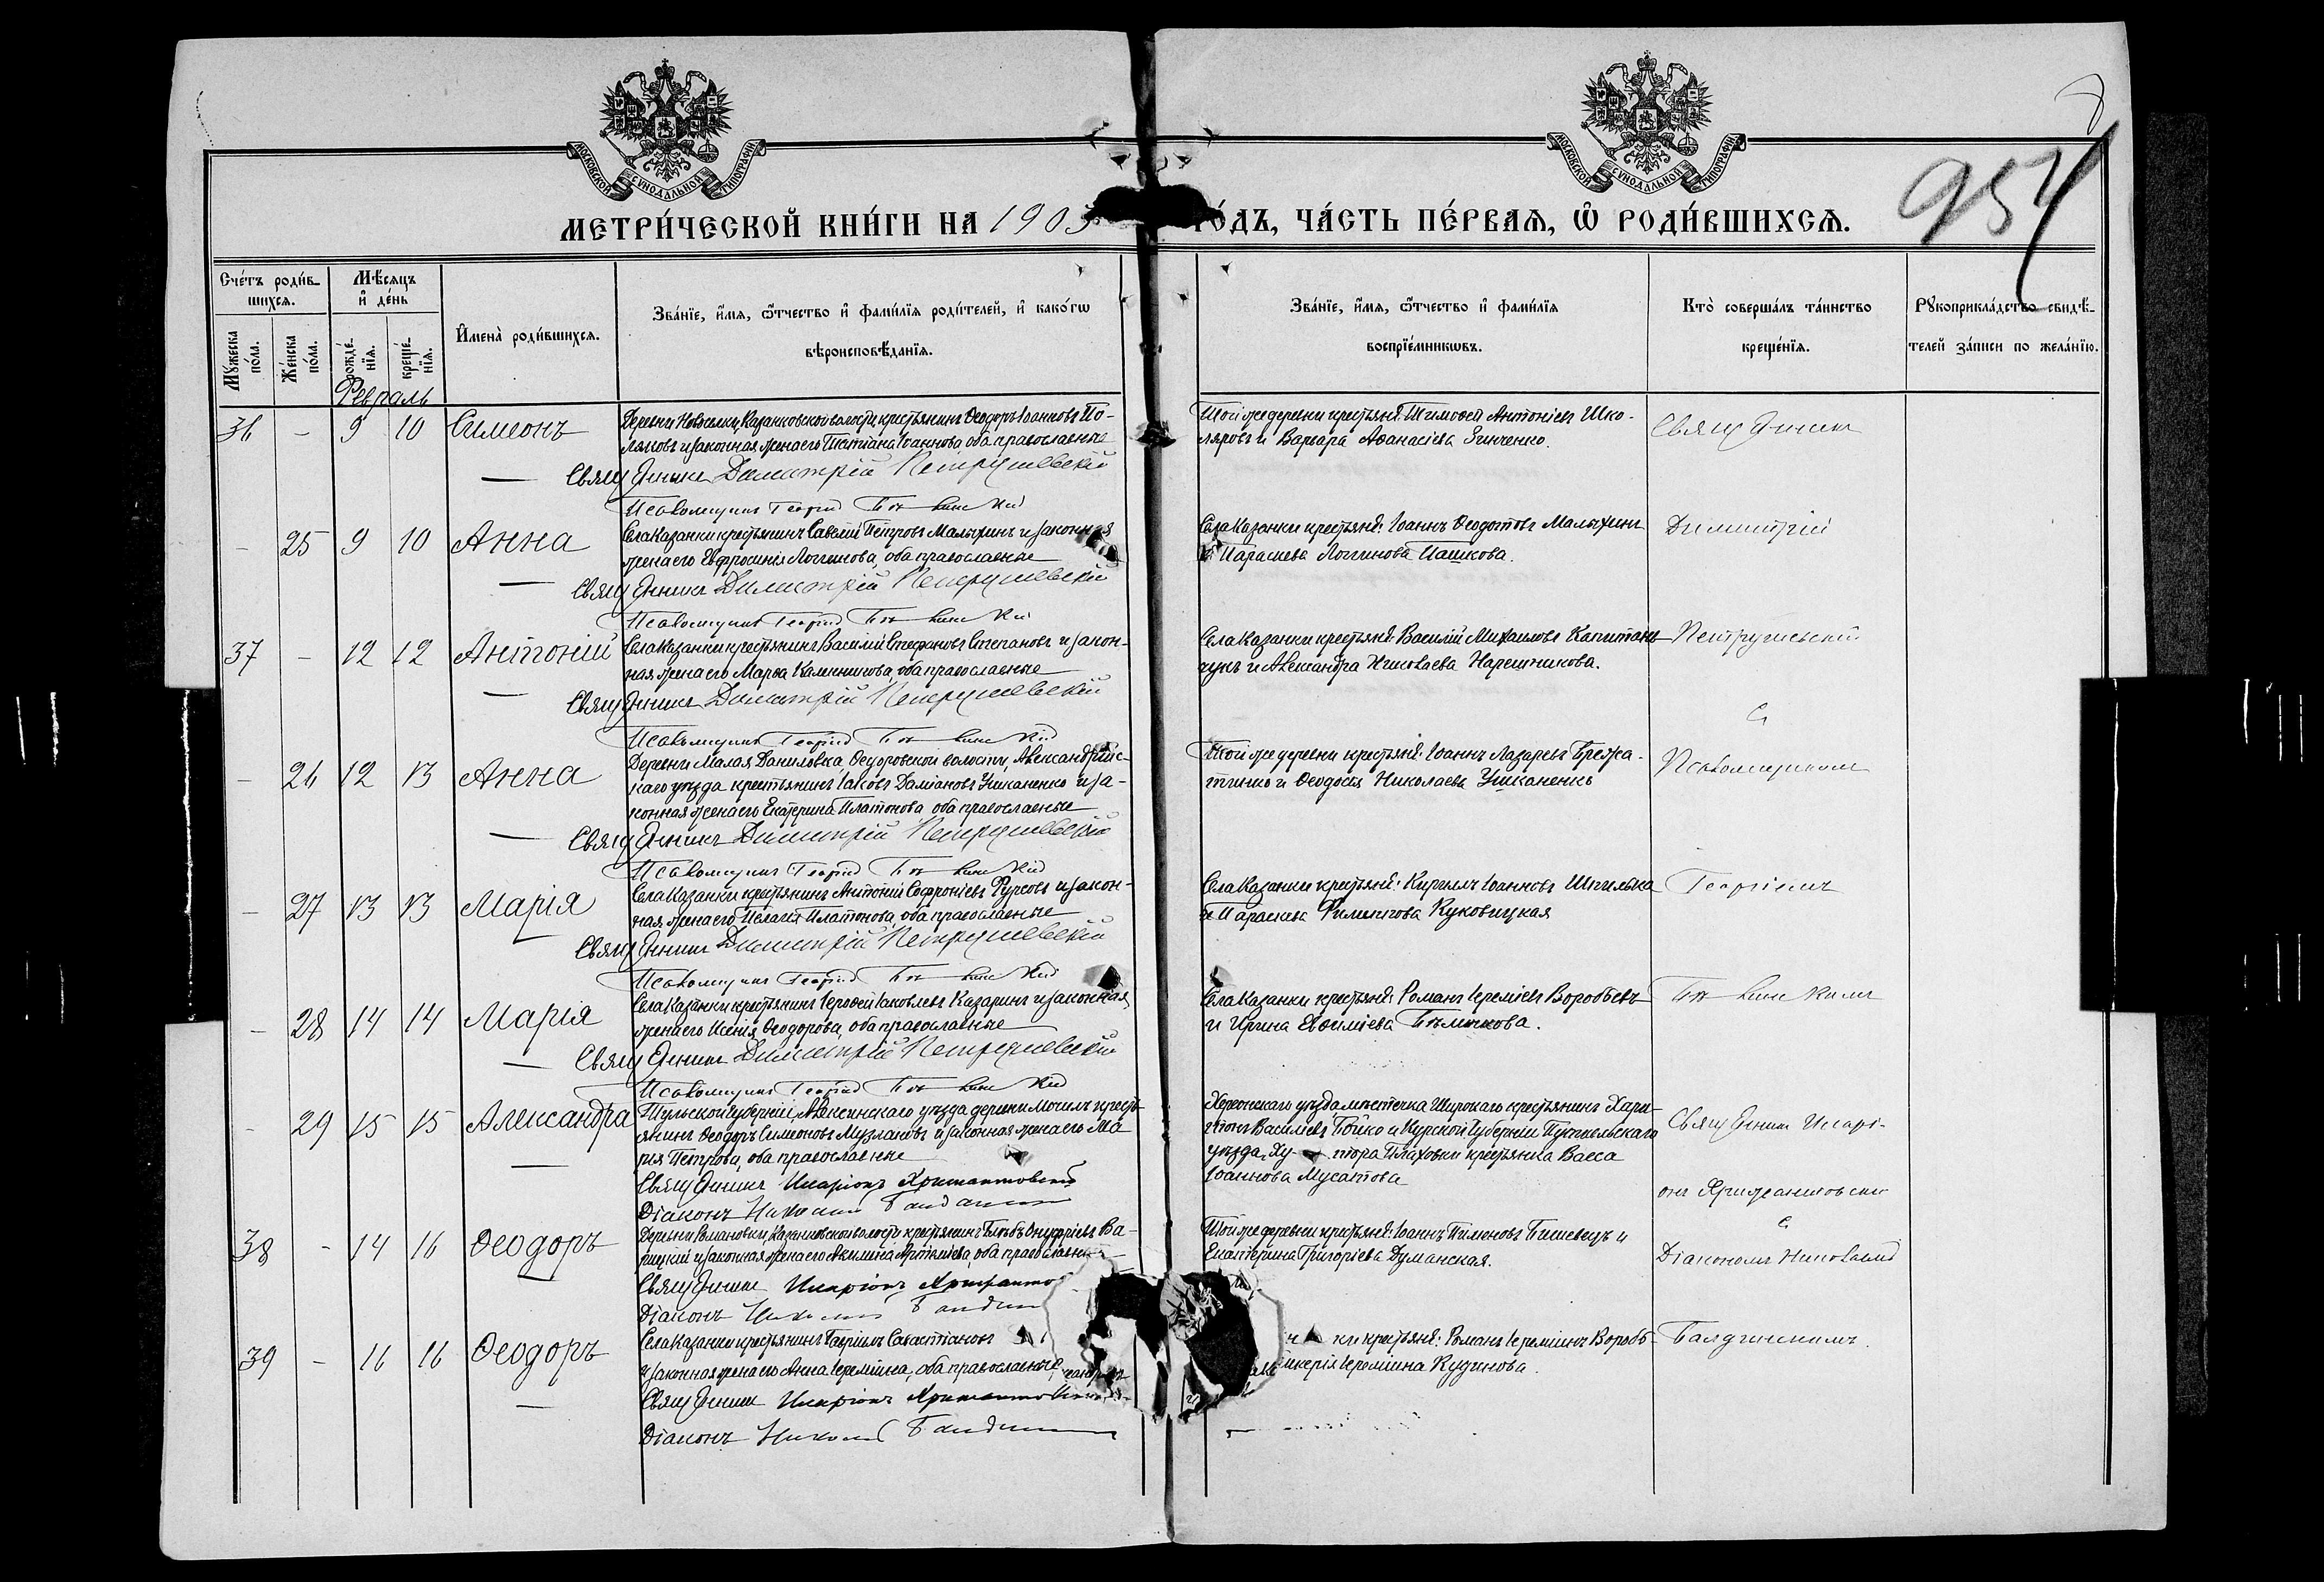 МОСКОВСКОЙ СѴНОДАЛЬНОЙ ТИПОГРАФІИ
МОСКОВСКОЙ СѴНОДАЛЬНОЙ ТИПОГРАФІИ
954
МЕТРИ́ЧЕСКОЙ КНИ́ГИ НА 1903
ГО́ДЪ, ЧА́СТЬ ПЕ́РВАЯ, Ѡ РОДИ́ВШИХСЯ.
Сче́тъ роди́в-
шихся.
Мѣ́сяцъ
и де́нь
Мꙋ́жеска
по́ла.
Же́нска
по́ла.
рожде́-
нїя.
креще́-
нїя.
Имена̀ роди́вшихся.
Зва́нїе, и́мя, ѻ҆́тчество и фами́лїя роди́телей, и како́гѡ
вѣроисповѣ́данїя.
Зва́нїе, и́мя, ѻ҆́тчество и фами́лїя
воспрїе́мникѡвъ.
Кто̀ соверша́лъ та́инство
креще́нїя.
Рꙋкоприкла́дство свидѣ́-
телей за́писи по жела́нїю.
Февраль
36 - 9 10 Симеонъ
Деревни Новоселки, Казанковской волости, крестьянинъ Ѳеодоръ Іоанновъ По-
ляковъ и законная жена его Татіана Іоаннова, оба православные
Священникъ Димитрій Петрушевскій
Псаломщикъ Георгій
Той же деревни крестьяне: Тимоѳей Антоніевъ Шко-
ляровъ и Варвара Аѳанасіева Зинченко.
Священникъ
- 25 9 10 Анна
Села Казанки крестьянинъ Савелій Петровъ Малыхинъ и законная
жена его Евфросинія Логгинова, оба православные
Священникъ Димитрій Петрушевскій
Псаломщикъ Георгій
Села Казанки крестьяне: Іоаннъ Ѳеодотовъ Малыхинъ
и Параскева Логгинова Пашкова.
Димитрій
37 - 12 12 Антоній
Села Казанки крестьянинъ Василій Стефановъ Степановъ и закон-
ная жена его Марѳа Калинникова, оба православные
Священникъ Димитрій Петрушевскій
Псаломщикъ Георгій
Села Казанки крестьяне: Василій Михаиловъ Капитан-
чукъ и Александра Николаева Нарешникова.
Петрушевскій
съ
- 26 12 13 Анна
Деревни Малая Даниловка, Ѳедоровской волости, Александрійс-
каго уѣзда крестьянинъ Іаковъ Даміановъ Ушканенко и за-
конная жена его Екатерина Платонова, оба православные
Священникъ Димитрій Петрушевскій
Псаломщикъ Георгій
Той же деревни крестьяне: Іоаннъ Лазаревъ Брежа-
тенко и Ѳеодосія Николаева Ушканенко
Псаломщикомъ
- 27 13 13 Марія
Села Казанки крестьянинъ Антоній Софроніевъ Рурсовъ и закон-
ная жена его Пелагія Платонова, оба православные
Священникъ Димитрій Петрушевскій
Псаломщикъ Георгій
Села Казанки крестьяне: Кириллъ Іоанновъ Шпилька
и Параскева Филиппова Куковицкая
Георгіемъ
- 28 14 14 Марія
Села Казанки крестьянинъ Іероѳей Іаковлевъ Казаринъ и законная
жена его Ксенія Ѳеодорова, оба православные
Священникъ Димитрій Петрушевскій
Псаломщикъ Георгій
Села Казанки крестьяне: Романъ Іереміевъ Воробьевъ
и Ирина Евѳиміева Бѣликова.
- 29 15 15 Александра
Тульской губерніи, Алексинскаго уѣзда деревни Мочилъ крест-
янинъ Ѳеодоръ Симеоновъ Музлановъ и законная жена его Ма
рія Петрова, оба православные
Священникъ Иларіонъ Хрисантовскій
Діаконъ Николай
Херсонскаго уѣзда мѣстечка Широкаго крестьянинъ Хари-
тонъ Васильевъ Бойко и Курской губерніи Путивльскаго
уѣзда, Ху- тора Плаховки крестьянка Васса
Іоаннова Мусатова
Священникъ Иларі-
онъ Хрисантовскій
съ
38 - 14 16 Ѳеодоръ
Деревни Романовки, Казанковской волости крестьянинъ Глѣбъ Онуфріевъ Ва-
рицкій и законная жена его Акилина Артеміева, оба православные
Священникъ Иларіонъ
Діаконъ Николай
Той же деревни крестьяне: Іоаннъ Пименовъ Бишевецъ и
Екатерина Григоріева Думанская.
Діакономъ Николаемъ
39 - 16 16 Ѳеодоръ
Села Казанки крестьянинъ Гавріилъ Савастіановъ
и законная жена его Анна Іереміина, оба православные
Священникъ Иларіонъ
Діаконъ Николай
ки крестьяне: Романъ Іереміинъ Воробь-
икерія Іереміина Кудинова.